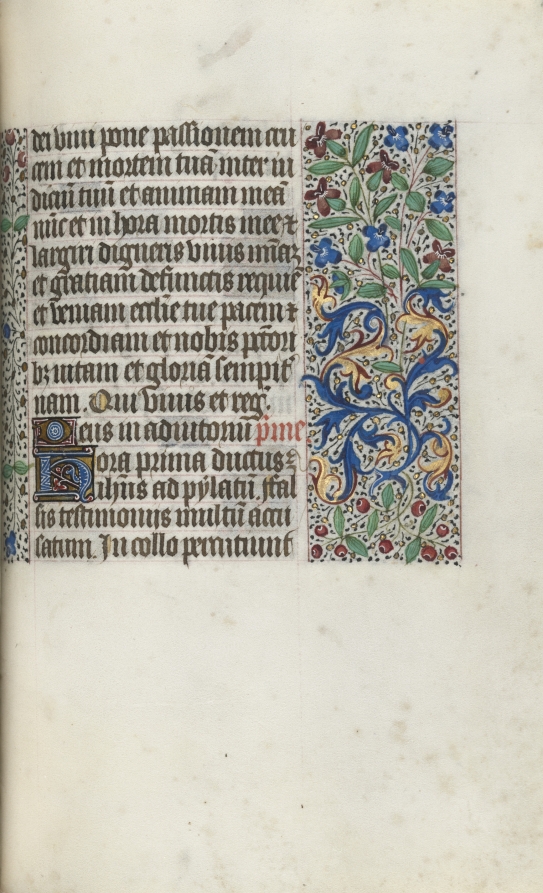 dei viui pone passionem cru
cem et mortem tuā inter iu
diciū tuū et animam meā
nūc et in hora mortis mee ⁊
largiri digneris viuis mīaꝫ
et gratiam defunctis requiē
et veniam ecclie tue pacem ⁊
concordiam et nobis pctori
bꝫ uitam et gloriā sempit
nam. Qui viuis et reg.
Deus in adiutoriū pīme
Hora prima ductus ē
ihūs ad pylatū. fal
sis testimoniis multū accu
satum. In collo percutiunt